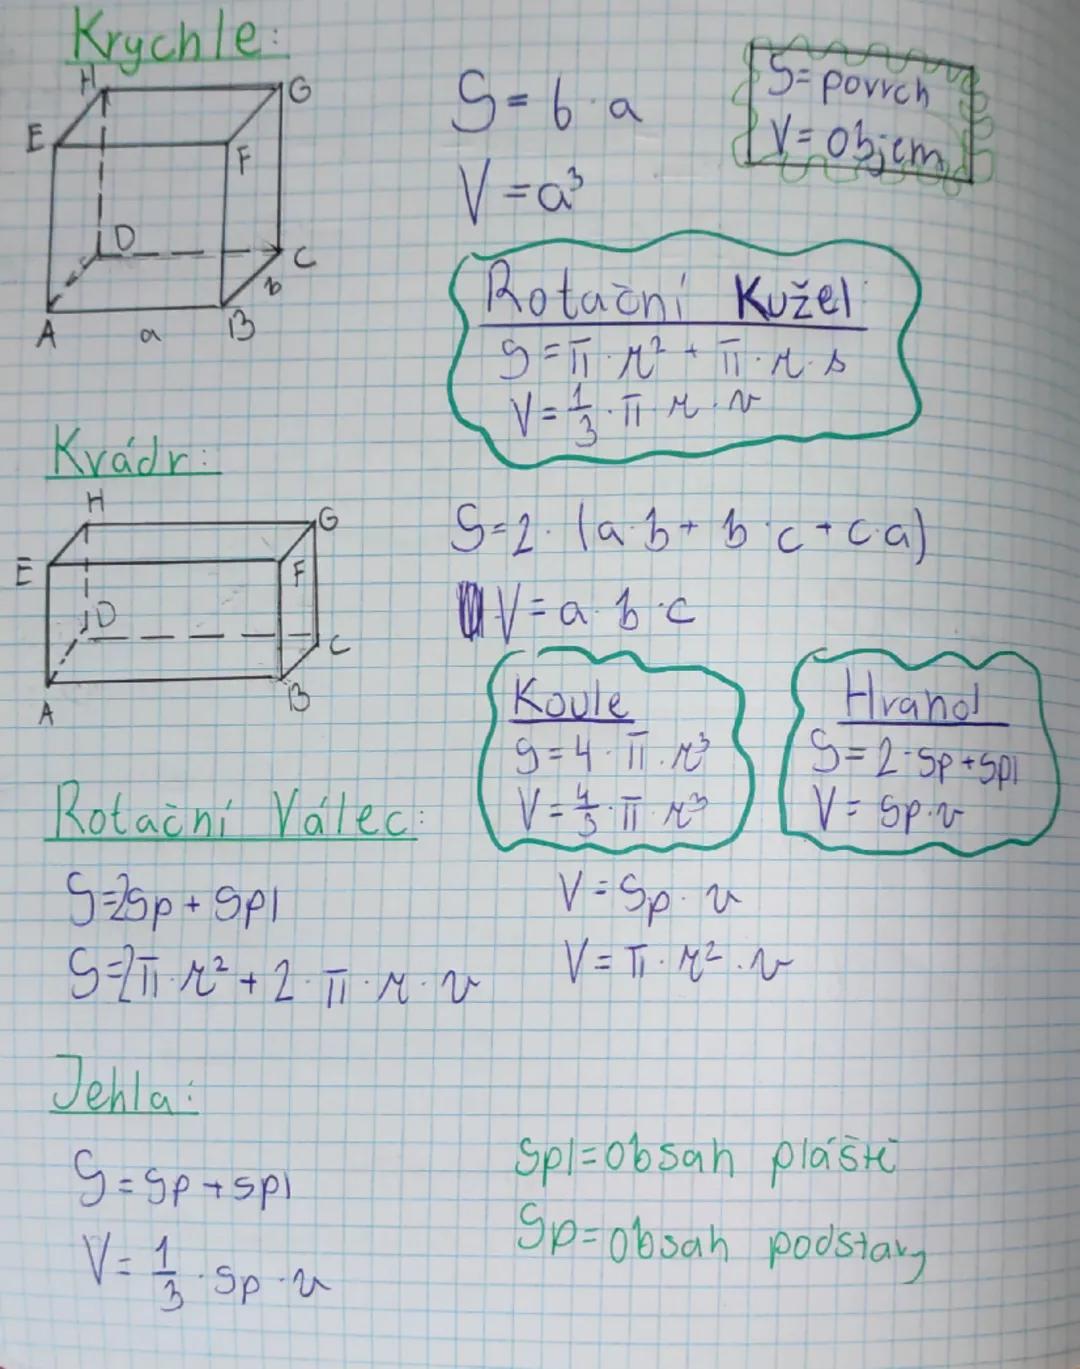 Krychle:
H
G
E
F
D
C
b
A
a
B
S = 6 · a
V = a³
S = povrch
V = objem
Rotační Kužel
S = π · r² + π · r · s
V = 1/3 · π r · v
Kvádr:
H
G
E
F
D
C
B
A
S = 2 · (a · b + b · c + c · a)
V = a · b · c
Koule
S = 4 · π · r³
V = 4/3 · π · r³
Hranol
S = 2 · Sp + Spl
V = Sp · v
Rotační Válec:
S = 2Sp + Spl
S = 2π · r² + 2 · π · r · v
V = Sp · v
V = π · r² · v
Jehla:
S = Sp + Spl
V = 1/3 · Sp · v
Spl = obsah pláště
Sp = obsah podstavy